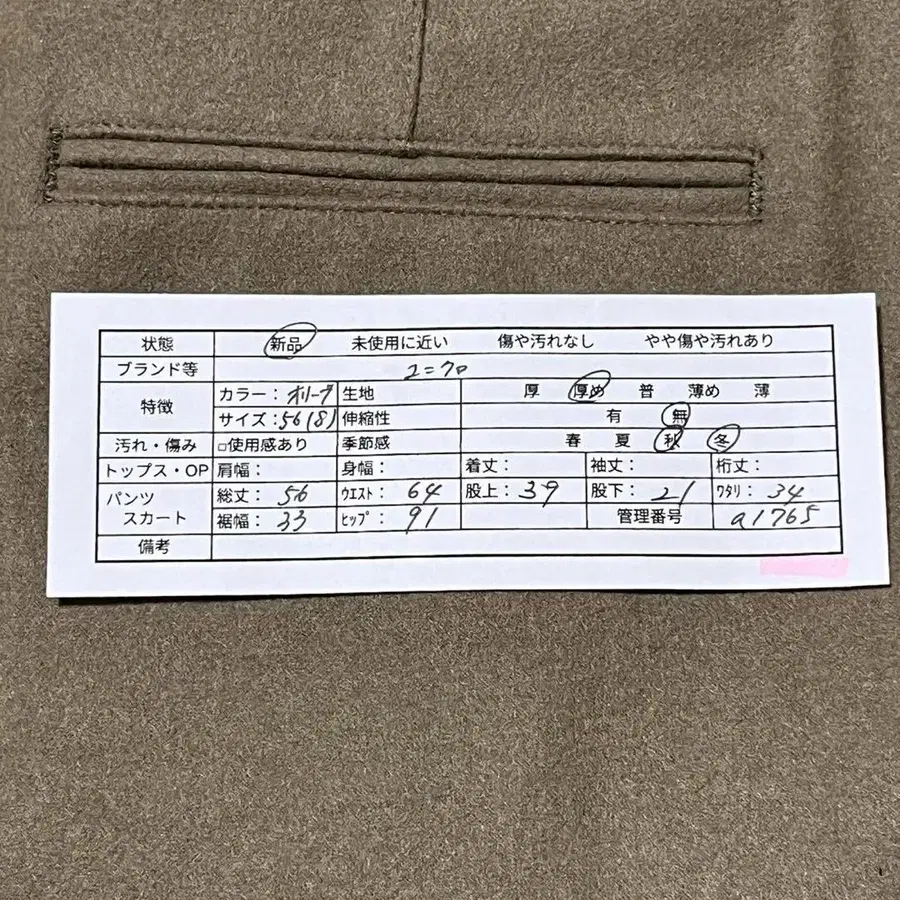 状態 新品 未使用に近い 傷や汚れなし やや傷や汚れあり
ブランド等 ユニクロ
特徴 カラー：オリーブ 生地 厚 厚め 普 薄め 薄
サイズ：56(8) 伸縮性 有 無
汚れ・傷み □使用感あり 季節感 春 夏 秋 冬
トップス・OP 肩幅： 身幅： 着丈： 袖丈： 桁丈：
パンツ スカート 総丈：56 ｳｴｽﾄ：64 股上：39 股下：21 ﾜﾀﾘ：34
裾幅：33 ﾋｯﾌﾟ：91 管理番号 a1765
備考